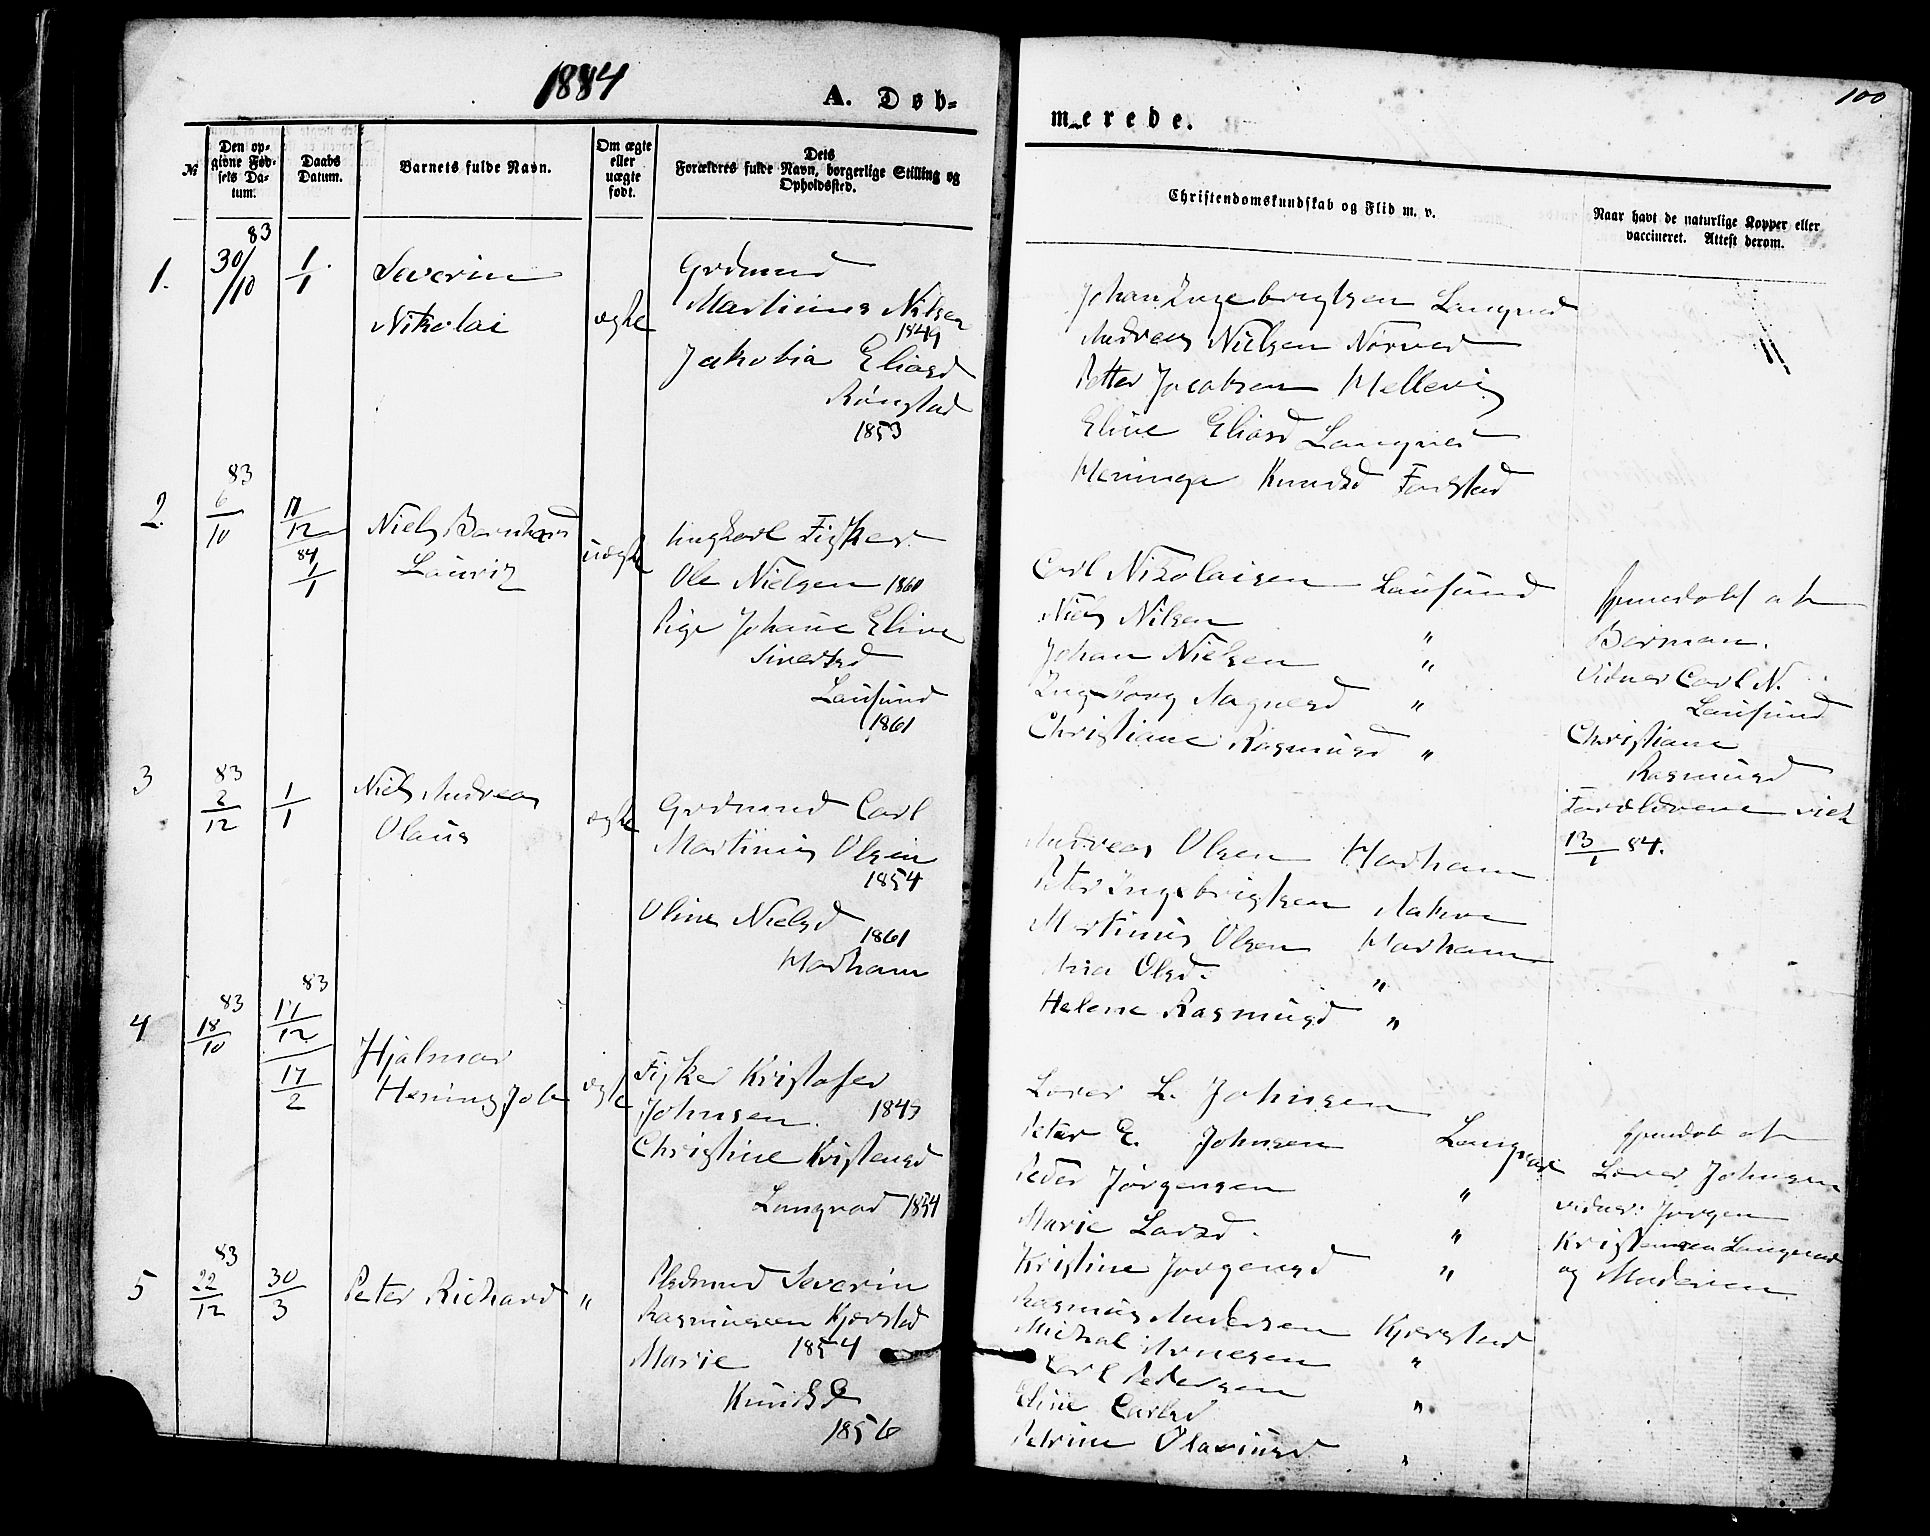 1884
A. Døb-
merede.
100
№
Den op-
givne Fød-
sels Da-
tum.
Daabs
Datum.
Barnets fulde Navn.
Om ægte
eller
uægte
født.
Dets
Forældres fulde Navn, borgerlige Stilling og
Opholdssted.
Christendomskundskab og Flid m. v.
Naar havt de naturlige Kopper eller
vaccineret. Attest derom.
1.
83
30/10
1/1
Severin
Nikolai
ægte
Grdmand
Martinus Nilsen
1849
Jakobia Eliasd
Rønstad
1853
Johan Ingebrigtsen Langnæs
Andreas Nielsen
Petter Jacobsen Hellevig
Eline Eliasd Langnæs
Knudsd
2.
83
6/10
12
84
1/1
Niels Bernhard
Lauritz
uægte
Ungkarl Fisker
Ole Nielsen 1860
Pige Johane Eline
Sivertsd
Lausund
1861
Carl Nikolaisen Lausund
Niels Nilsen "
Johan Nielsen "
Ingeborg Magnesd "
Christiane Rasmusd "
hjemdøbt af
Berman.
Vidner Carl N.
Lausund
Christiane
Rasmusd
Forældrene viet
13/1 84.
3
83
2/12
1/1
Niels Andreas
Olaus
ægte
Grdmand Carl
Martinus Olsen
1854
Oline Nielsd 1861
Harham
Andreas Olsen Harham
Peter Ingebrigtsen
Martinus Olsen Harham
Olsd. "
Helene Rasmusd "
4
83
18/10
83
17/12
17/2
Hjalmar
Hening Job
ægte
Fisker Kristofer
Johnsen. 1849
Christine Kristensd
Langnæs 1854
Lærer L. Johnsen
Peter E. Johnsen Langnæs
Peder Jørgensen "
Marie Larsd. "
Kristine Jørgensd "
hjemdøb af
Lærer Johnsen
vidner: Jørgen
Kristensen Langnæs
og Moderen
5
83
22/12
30/3
Peter Richard
"
Plsdmand Severin
Rasmussen Kjerstad
1854
Marie
Knudsd
1856
Rasmus Andersen Kjerstad
Mickal Arnesen "
Carl Petersen
Eline Carlsd "
Petrine Olausd "